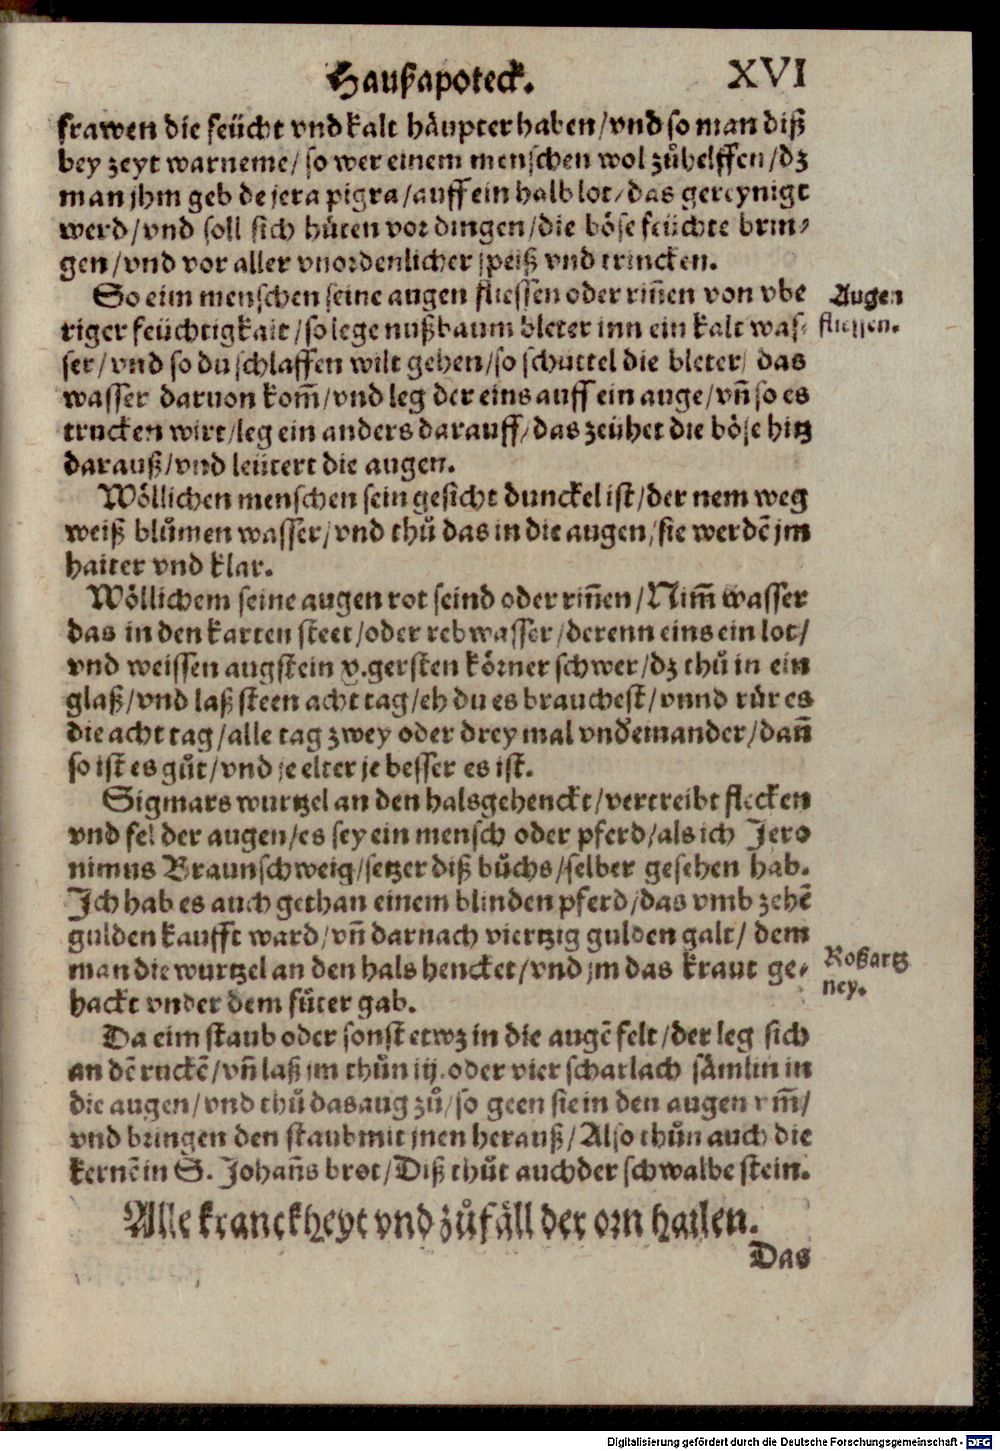 Haußapoteck. XVI
frawen die feücht vnd kalt häupter haben/vnd so man diß
bey zeyt warneme/ so wer einem menschen wol zůhelffen/dz
man jhm geb de jera pigra/auff ein halb lot/das gereynigt
werd/vnd soll sich hüten vor dingen/die böse feüchte brin⸗
gen/vnd vor aller vnordenlicher speiß vnd trincken.
So eim menschen seine augen fliessen oder riñen von vbe
Augen
riger feüchtigkait/so lege nußbaum bleter inn ein kalt was⸗
fliessen.
ser/vnd so du schlaffen wilt gehen/so schüttel die bleter/ das
wasser daruon kom̃/vnd leg der eins auff ein auge/vñ so es
trucken wirt/leg ein anders darauff/das zeühet die böse hitz
darauß/vnd leütert die augen.
Wöllichen menschen sein gesicht dunckel ist/der nem weg
weiß blůmen wasser/vnd thů das in die augen/sie werdẽ jm
haiter vnd klar.
Wöllichem seine augen rot seind oder riñen/Nim̃ wasser
das in den karten steet/oder rebwasser/derenn eins ein lot/
vnd weissen augstein v.gersten körner schwer/dz thů in ein
glaß/vnd laß steen acht tag/eh du es brauchest/vnnd rür es
die acht tag/alle tag zwey oder drey mal vndeinander/dañ
so ist es gůt/vnd je elter je besser es ist.
Sigmars wurtzel an den hals gehenckt/vertreibt flecken
vnd fel der augen/es sey ein mensch oder pferd/als ich Jero
nimus Braunschweig/setzer diß bůchs/selber gesehen hab.
Ich hab es auch gethan einem blinden pferd/das vmb zehẽ
gulden kaufft ward/vñ darnach viertzig gulden galt/ dem
man die wurtzel an den hals hencket/vnd jm das kraut ge⸗
Roßartz
ney.
hackt vnder dem fůter gab.
Da eim staub oder sonst etwz in die augẽ felt/der leg sich
an dẽ ruckẽ/vñ laß jm thůn iij.oder vier scharlach sämlin in
die augen/vnd thů das aug zů/so geen sie in den augen vm̃/
vnd bringen den staub mit jnen herauß/Also thůn auch die
kernẽ in S. Johañs brot/Diß thůt auch der schwalbe stein.
Alle kranckheyt vnd zůfäll der orn hailen.
Das
Digitalisierung gefördert durch die Deutsche Forschungsgemeinschaft - DFG